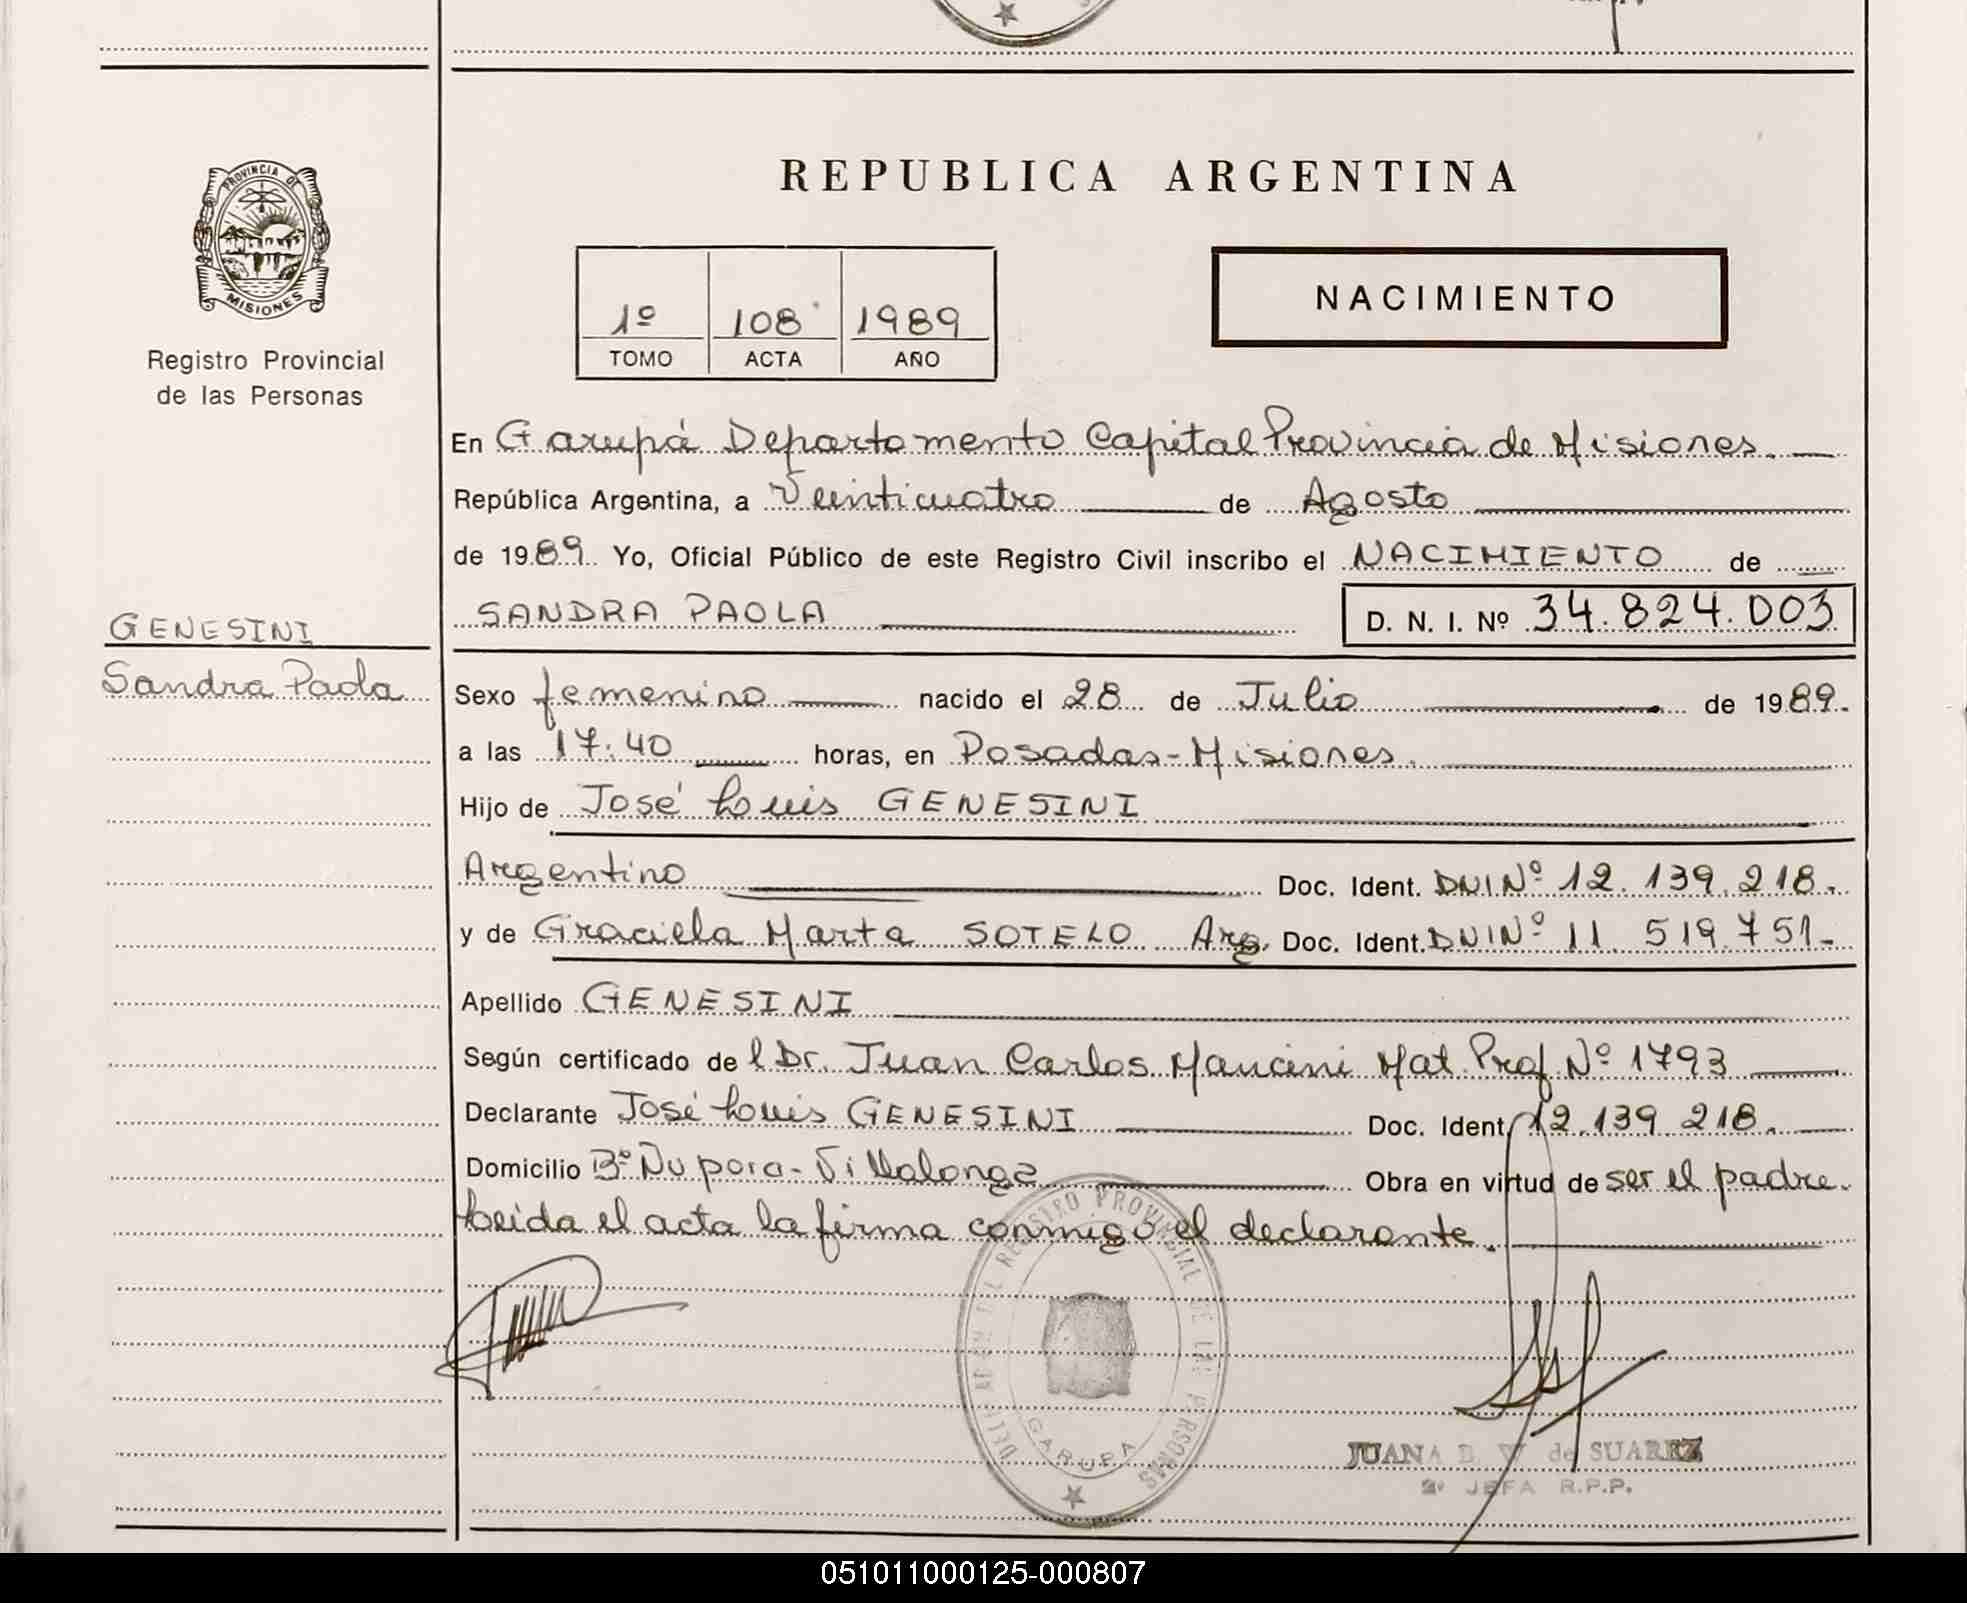 PROVINCIA DE
MISIONES
Registro Provincial
de las Personas
GENESINI
Sandra Paola
REPUBLICA ARGENTINA
1º 108 1989
TOMO ACTA AÑO
NACIMIENTO
En Garupá Departamento Capital Provincia de Misiones.
República Argentina, a Veinticuatro de Agosto
de 1989. Yo, Oficial Público de este Registro Civil inscribo el NACIMIENTO de
SANDRA PAOLA D. N. I. Nº 34.824.003
Sexo femenino nacido el 28 de Julio de 1989.
a las 17:40 horas, en Posadas-Misiones.
Hijo de José Luis GENESINI
Argentino Doc. Ident. DNI Nº 12.139.218.
y de Graciela Marta SOTELO Arg. Doc. Ident. DNI Nº 11.519.751-
Apellido GENESINI
Según certificado del Dr. Juan Carlos Mancini Mat. Prof. Nº 1793
Declarante José Luis GENESINI Doc. Ident. 12.139.218.
Domicilio Bº Ñu pora-Villalonga Obra en virtud de ser el padre.
Leida el acta la firma conmigo el declarante.
DELEGACION DEL REGISTRO PROVINCIAL DE LAS PERSONAS
GARUPA
JUANA B. V. de SUAREZ
2º JEFA R.P.P.
051011000125-000807